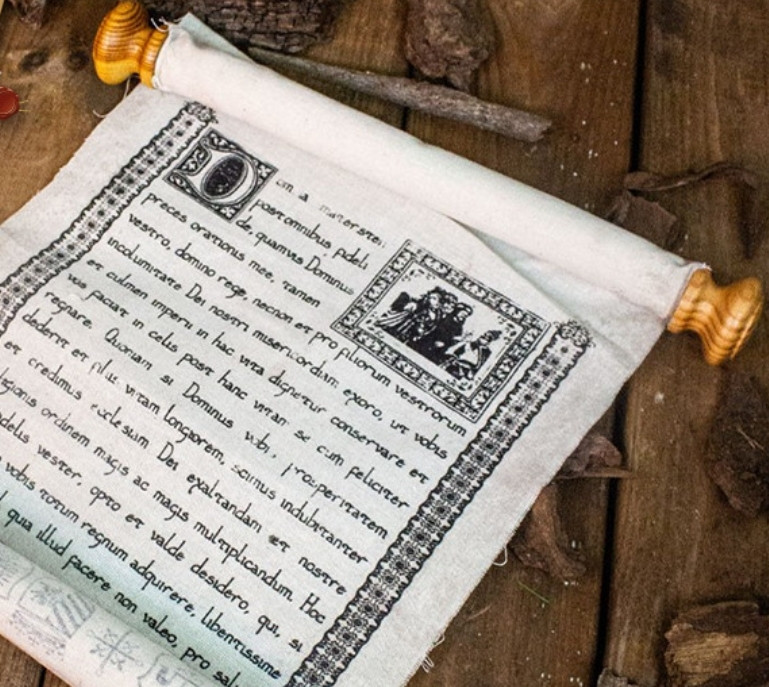 post omnibus fideli
de, quamvis Dominus
preces orationis mee, tamen
vestro, domino rege, necnon et pro filiorum vestrorum
incolumitate Dei nostri misericordiam exoro, ut vobis
et culmen imperii in hac vita dignetur conservare et
vos faciat in celis post hanc vitam se cum feliciter
regnare. Quoriam si Dominus vobis, prosperitatem
dederit et filiis vitam longiorem, scimus indubitanter
et credimus ecclesiam Dei exaltandam et nostre
ligionis ordinem magis ac magis multiplicandum. Hoc
delis vester, opto et valde desidero, qui, si
vobis totum regnum adquirere, libentissime
quia illud facere non valeo, pro sal